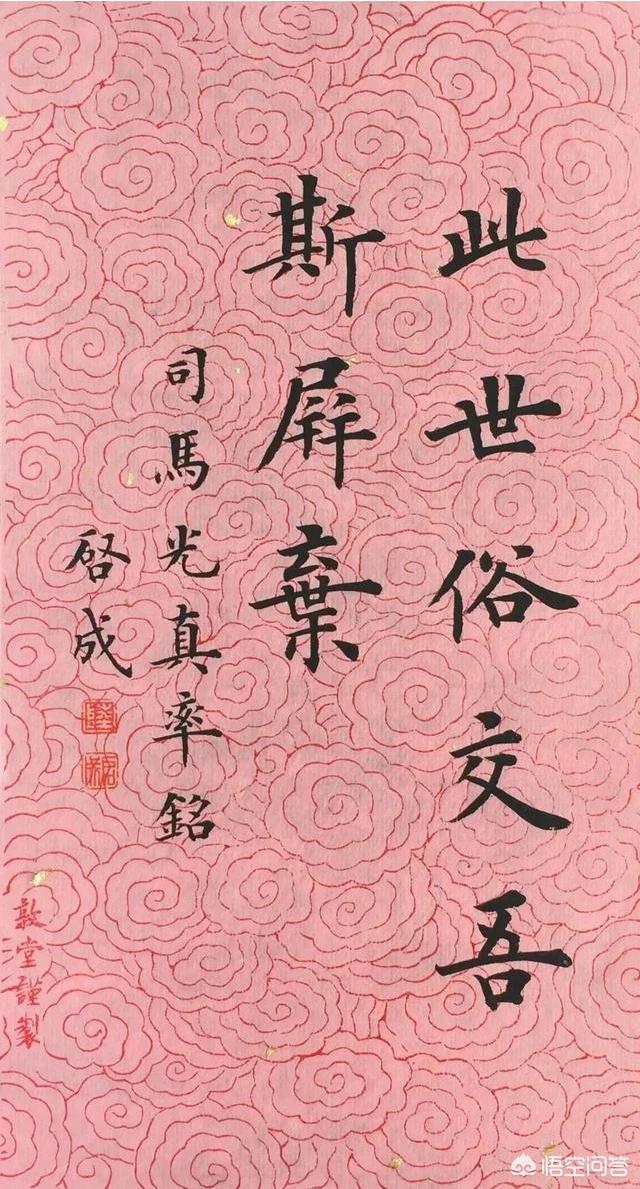 此世俗交吾
斯屏棄
司馬光真率銘
啓成
敦堂謹製
悟空问答